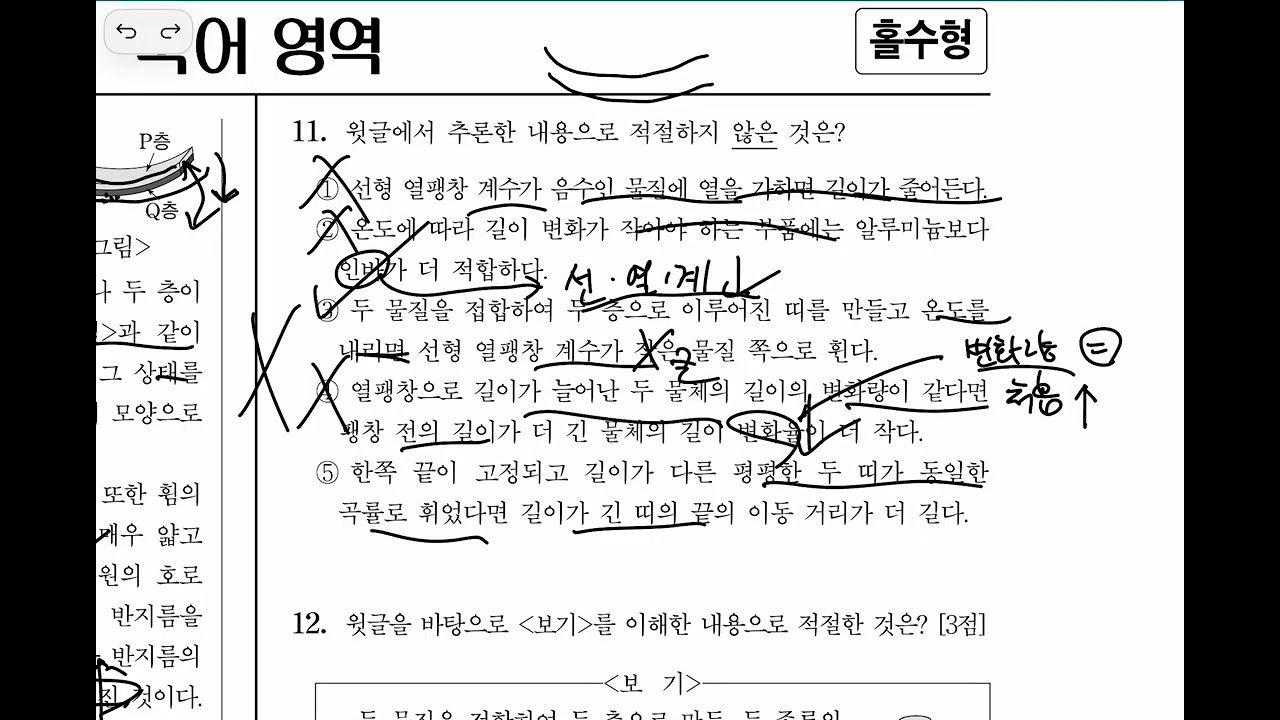 어 영역
홀수형
P층
Q층
그림>
나 두 층이
>과 같이
그 상태를
모양으로
또한 휨의
매우 얇고
원의 호로
반지름을
반지름의
진 것이다.
11. 윗글에서 추론한 내용으로 적절하지 않은 것은?
① 선형 열팽창 계수가 음수인 물질에 열을 가하면 길이가 줄어든다.
② 온도에 따라 길이 변화가 작아야 하는 부품에는 알루미늄보다
인바가 더 적합하다.
선·열·계 ↓
③ 두 물질을 접합하여 두 층으로 이루어진 띠를 만들고 온도를
내리면 선형 열팽창 계수가 작은 물질 쪽으로 휜다.
큰
변화량 =
처음 ↑
④ 열팽창으로 길이가 늘어난 두 물체의 길이의 변화량이 같다면
팽창 전의 길이가 더 긴 물체의 길이 변화율이 더 작다.
⑤ 한쪽 끝이 고정되고 길이가 다른 평평한 두 띠가 동일한
곡률로 휘었다면 길이가 긴 띠의 끝의 이동 거리가 더 길다.
12. 윗글을 바탕으로 <보기>를 이해한 내용으로 적절한 것은? [3점]
<보 기>
두 물질을 접합하여 두 층으로 만든 두 종류의